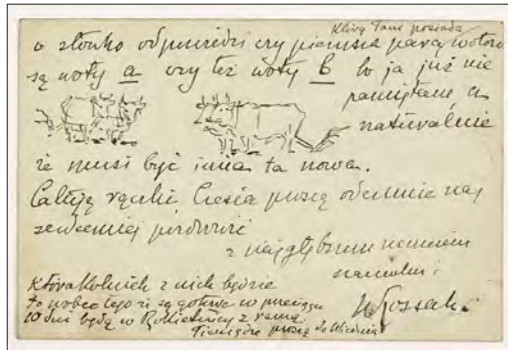 którą Pani posiada
o słówko odpowiedzi czy pierwszą parą wołów
są woły a czy też woły b bo ja już nie
pamiętam, a
naturalnie
że musi być inna ta nowa.
Całuję rączki Ciesia proszę odemnie naj
serdeczniej pozdrowić
z najgłębszem
Którakolwiek z nich będzie
to wobec tego iż są gotowe w przeciągu
10 dni będą w z ramą
Pieniądze proszę do Wiednia
WKossak